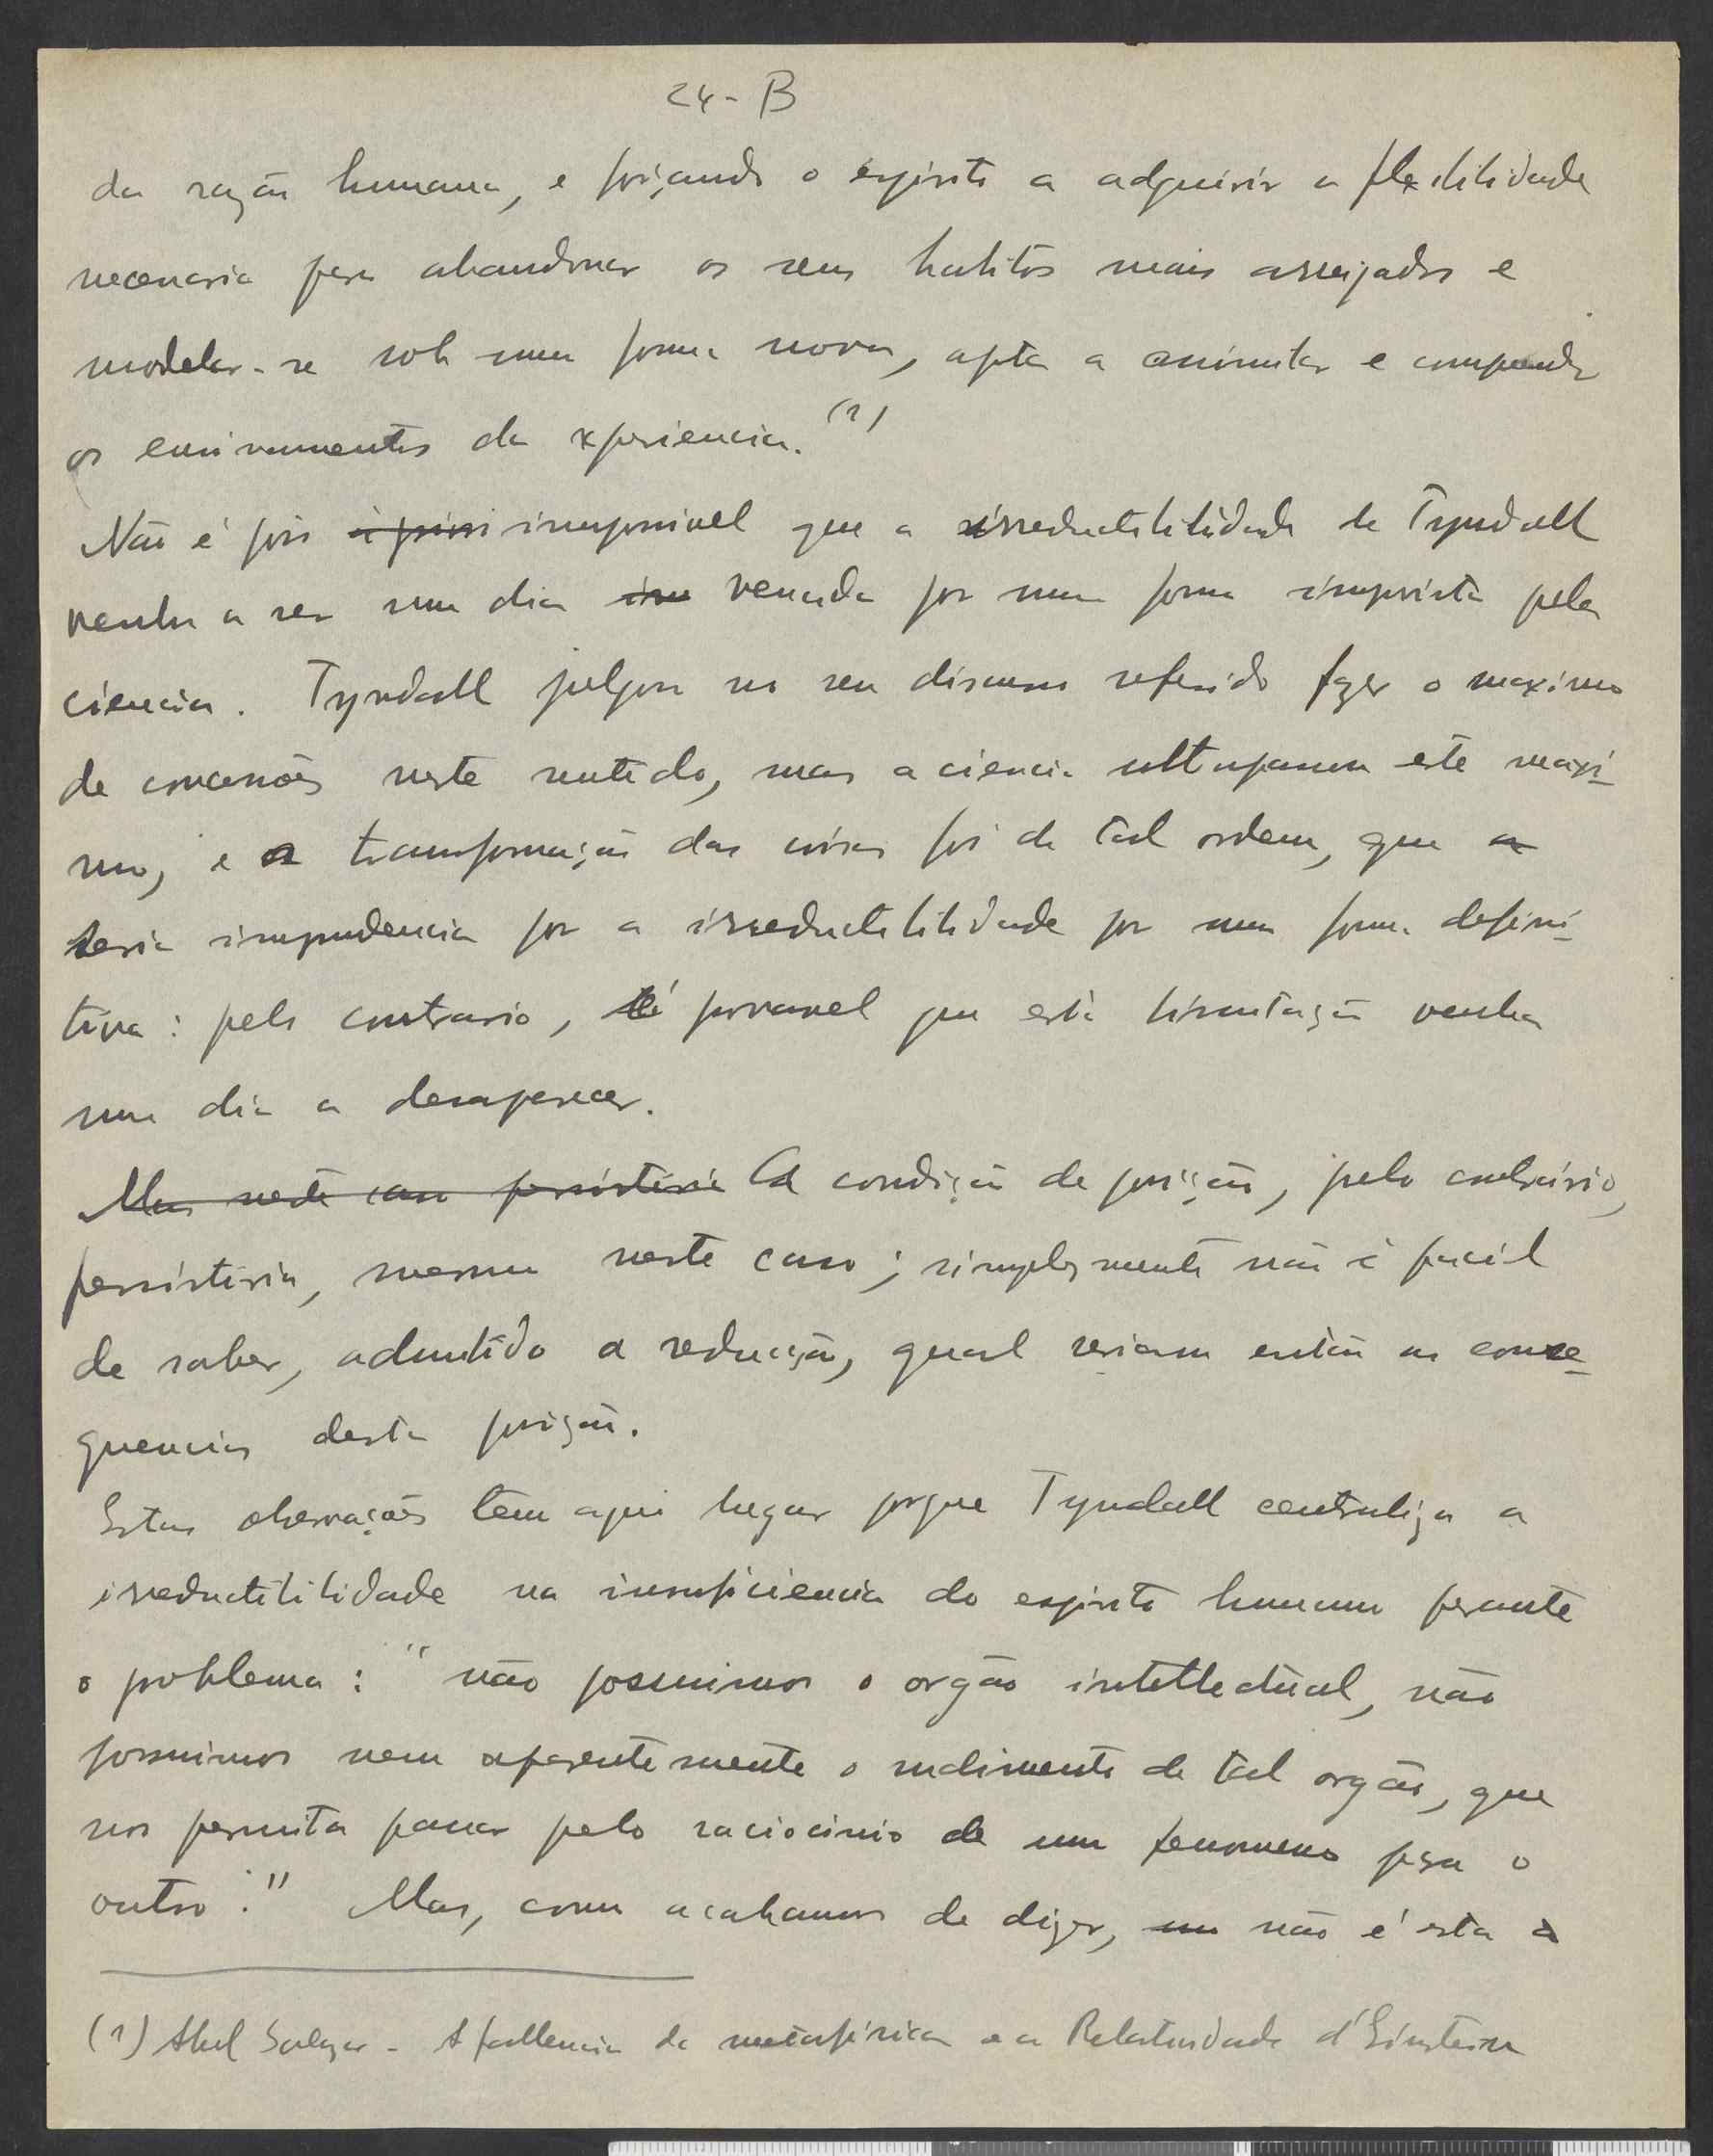 24-B
da razão humana, e forçando o espirito a adquirir a flexibilidade
necessaria para abandonar os seus habitos mais arreigados e
modelar-se sob uma forma nova, apta a assimilar e compreender
os ensinamentos da experiencia. (1)
Não é pois à priori impossivel que a irreductibilidade de Tyndall
venha a ser um dia vencida por uma forma imprevista pela
ciencia. Tyndall julgou no seu discurso referido fazer o maximo
de concessões neste sentido, mas a ciencia ultrapassou este maxi-
mo, e a transformação das coisas foi de tal ordem, que a
seria imprudencia pôr a irreductibilidade por uma forma defini-
tiva: pelo contrario, é provavel que esta limitação venha
um dia a desaparecer.
Mas neste caso persistiria A condição de posição, pelo contrário,
persistiria, mesmo neste caso; simplesmente não é facil
de saber, admitido a redução, qual seriam então as conse-
quencias desta posição.
Estas observações têm aqui lugar porque Tyndall centraliza a
irreductibilidade na insuficiencia do espirito humano perante
o problema: "não possuimos o orgão intellectual, não
possuimos nem aparentemente o rudimento de tal orgão, que
nos permita passar pelo raciocinio de um fenomeno para o
outro." Mas, como acabamos de dizer, não é esta a
(1) Abel Salazar - A fallencia da metafisica e a Relatividade d'Einstein